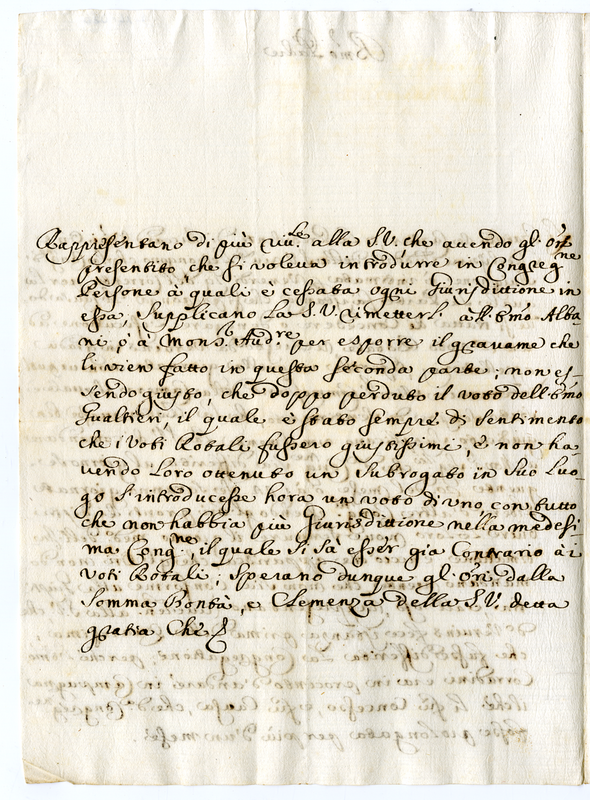 Rappresentano di più riu.te alla S.V. che avendo gl'Ori
presentito che si voleva introdurre in Congreg.ne
Persone à quali è cessata ogni Jurisdittione in
essa, Supplicano la S.V. rimetterli all'Emo Alba=
ni, ò à Mons.r Aud.re per esporre il gravame che
li vien fatto in questa seconda parte; non es=
sendo giusto, che doppo perduto il voto dell'Emo
Gualtieri, il quale è stato sempre di sentimento
che i voti Rotali fussero giustissimi, è non ha=
vendo Loro ottenuto un Subrogato in suo luo=
go s'introducesse hora un voto di uno, con tutto
che non habbia più Jurisdittione nella medesi
ma Cong.ne, il quale si sà esser già Contrario à i
voti Rotali; sperano dunque gl'Ori dalla
somma Bontà, e Clemenza della S.V. detta
gratia Che